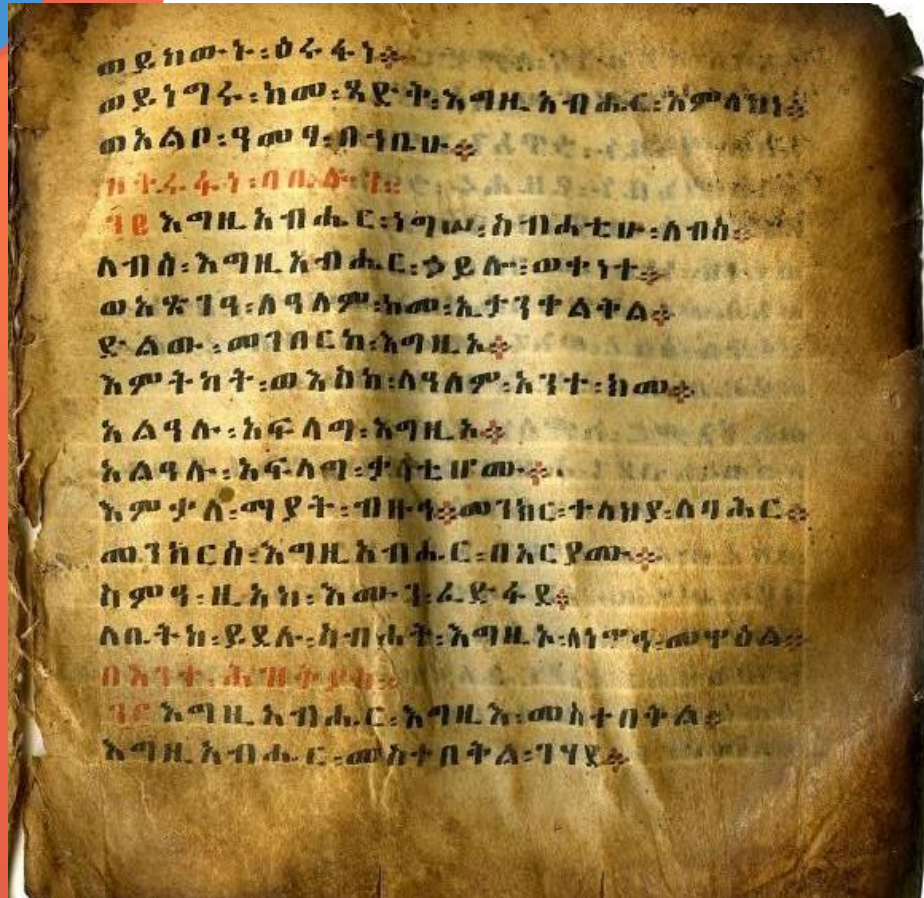 ወይከውኑ፡ዕሩፋነ።
ወይነግሩ፡ከመ፡ጻድቅ፡እግዚአብሔር፡አምላክነ።
ወአልቦ፡ዓመፃ፡በኀቤሁ።
እግዚአብሔር፡ነግሠ፡ስብሓቲሁ፡ለብሰ።
ለብሰ፡እግዚአብሔር፡ኃይሎ፡ወቀነተ።
ወአጽንዓ፡ለዓለም፡ከመ፡ኢታንቀልቅል።
ድልው፡መንበርከ፡እግዚኦ።
እምትካት፡ወእስከ፡ለዓለም፡አንተ፡ክመ።
አልዓሉ፡አፍላግ፡እግዚኦ።
አልዓሉ፡አፍላግ፡ቃላቲሆሙ።
እምቃለ፡ማያት፡ብዙኅ።መንክር፡ተላህያ፡ለባሕር።
መንክርሰ፡እግዚአብሔር፡በአርያሙ።
ስምዓ፡ዚአከ፡እሙን፡ፈድፋደ።
ለቤትከ፡ይደሉ፡ስብሓት፡እግዚኦ፡ለነዋኅ፡መዋዕል።
በእንተ፡
እግዚአብሔር፡እግዚእ፡መስተበቅል።
እግዚአብሔር፡መስተበቅል፡ገሃደ።